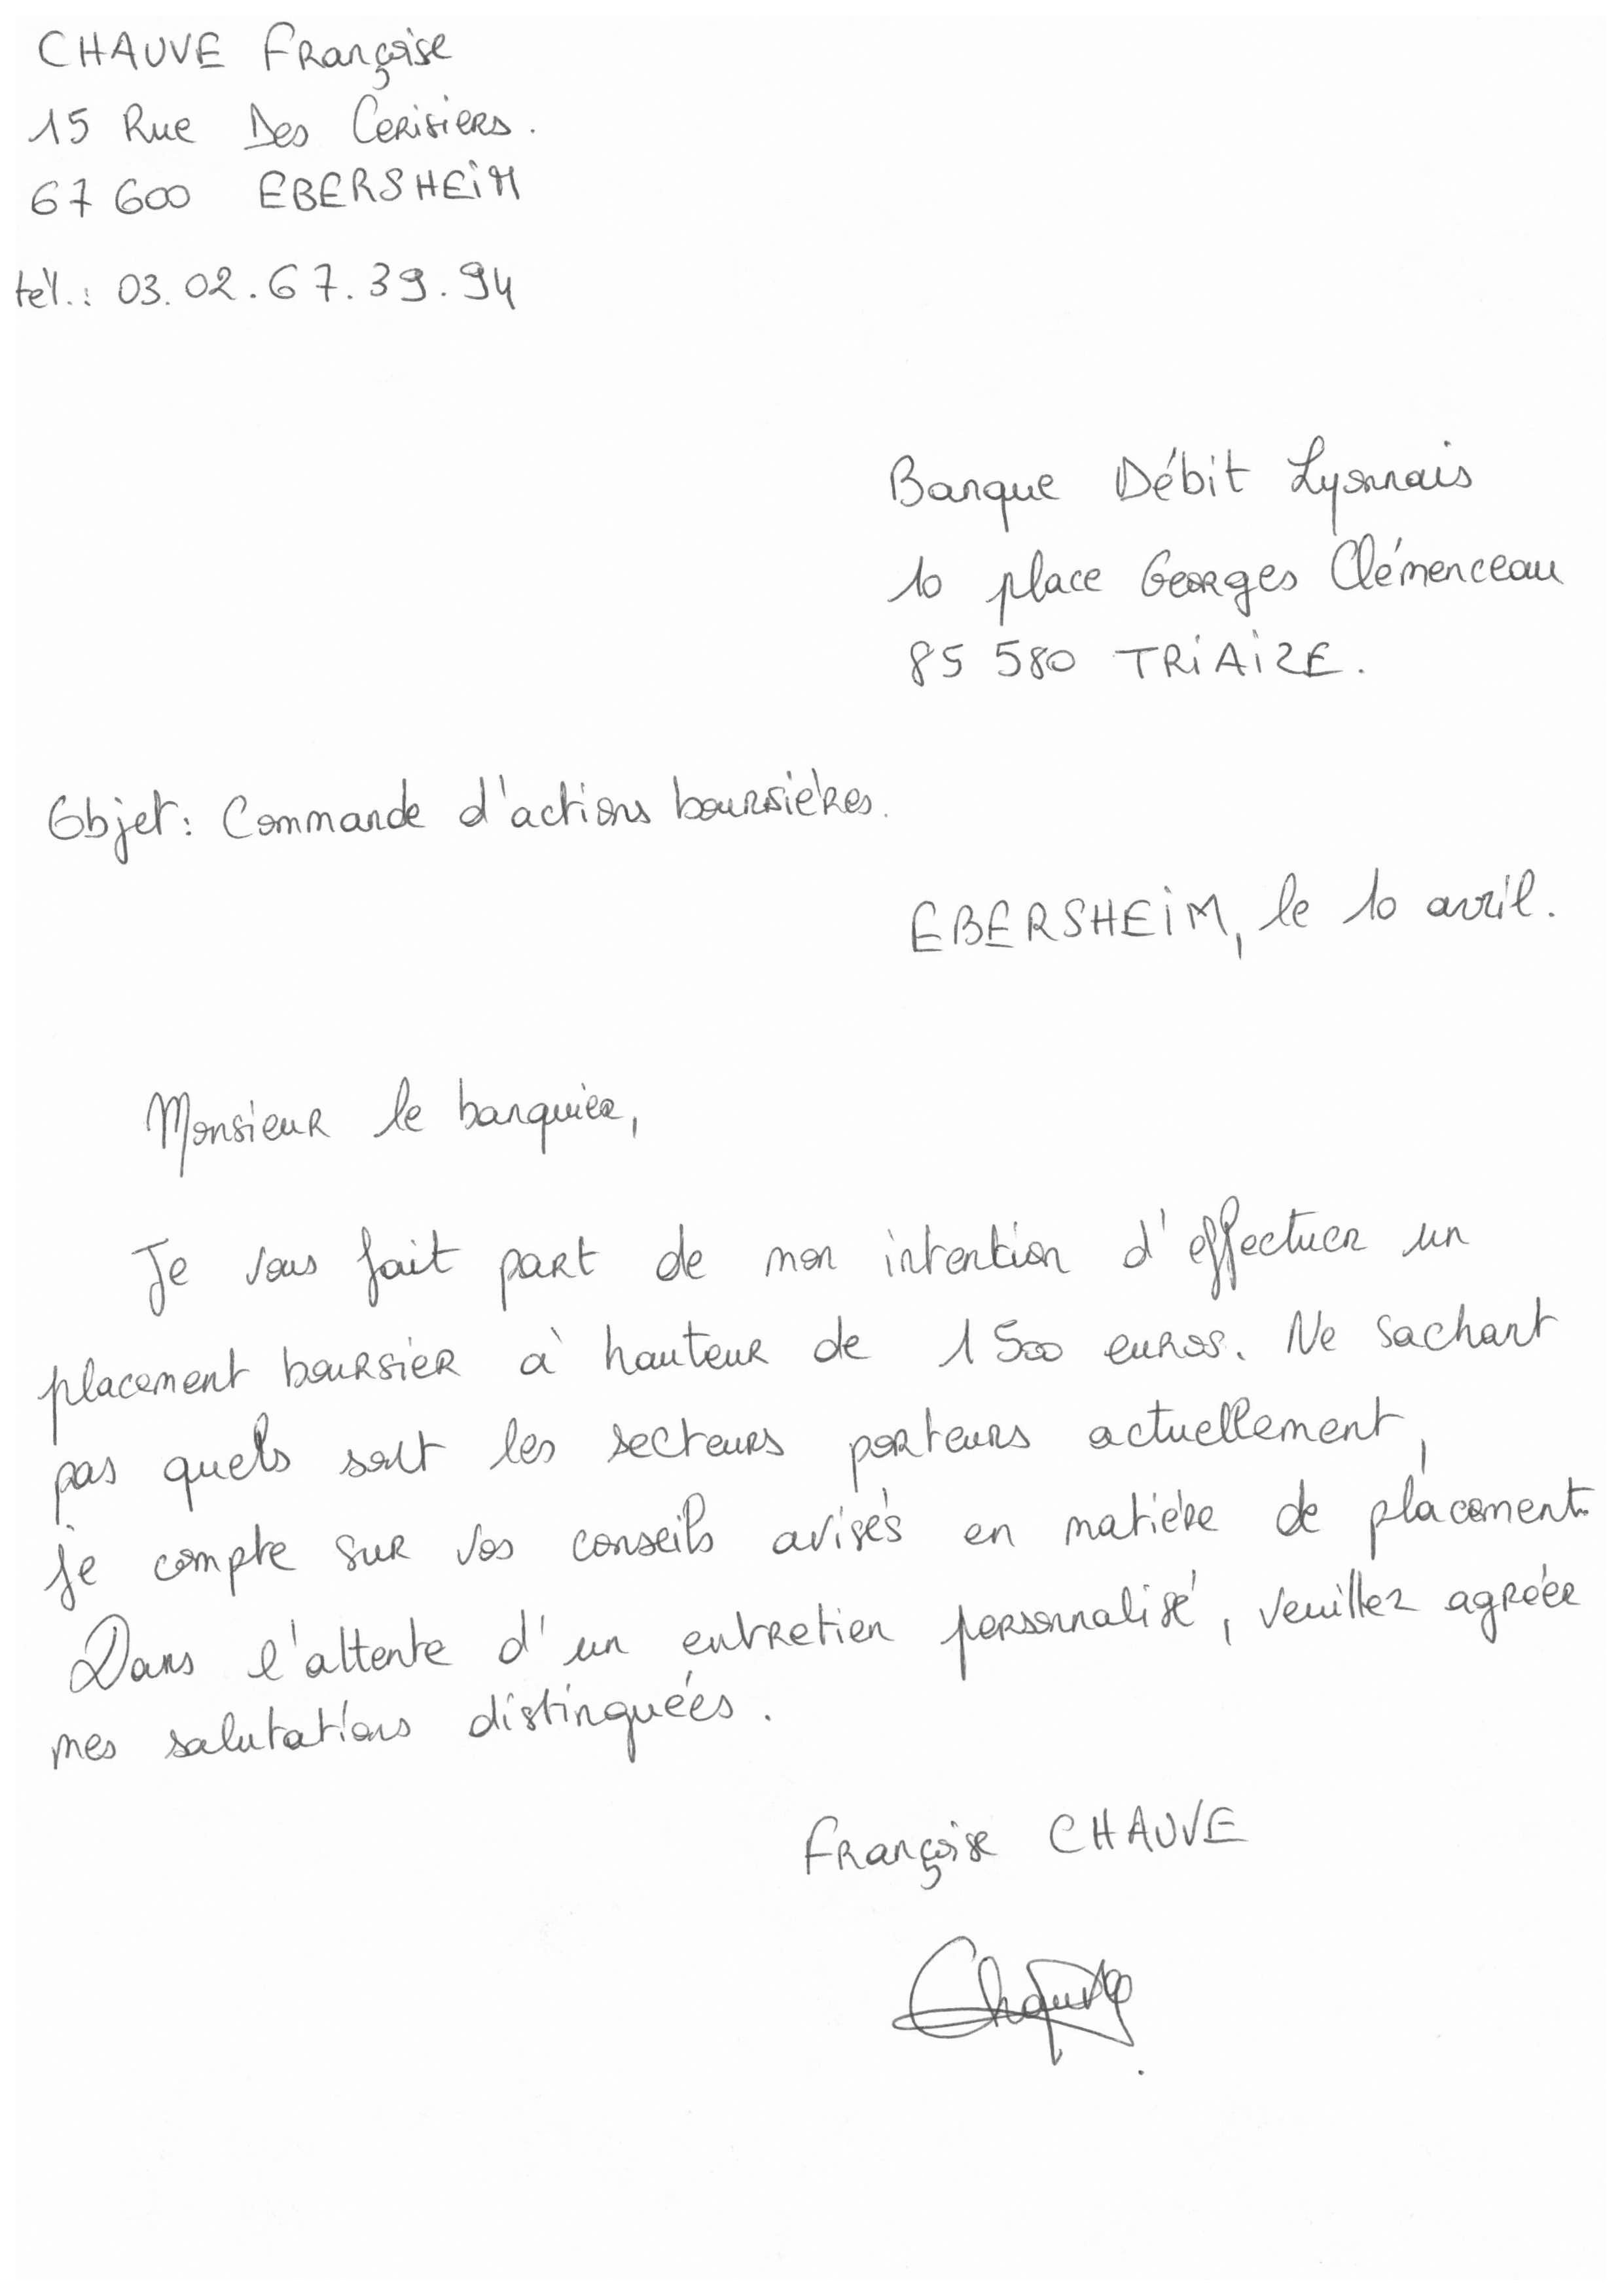 CHAUVE Françoise
15 Rue Des Cerisiers.
67 600 EBERSHEIM
tél.: 03.02.67.39.94
Banque Débit Lyonnais
10 place Georges Clémenceau
85 580 TRIAIZE.
Objet: Commande d'actions boursières.
EBERSHEIM, le 10 avril.
Monsieur le banquier,
Je vous fait part de mon intention d'effectuer un
placement boursier à hauteur de 1 500 euros. Ne sachant
pas quels sont les secteurs porteurs actuellement,
je compte sur vos conseils avisés en matière de placement.
Dans l'attente d'un entretien personnalisé, veuillez agréer
mes salutations distinguées.
Françoise CHAUVE
Chauve